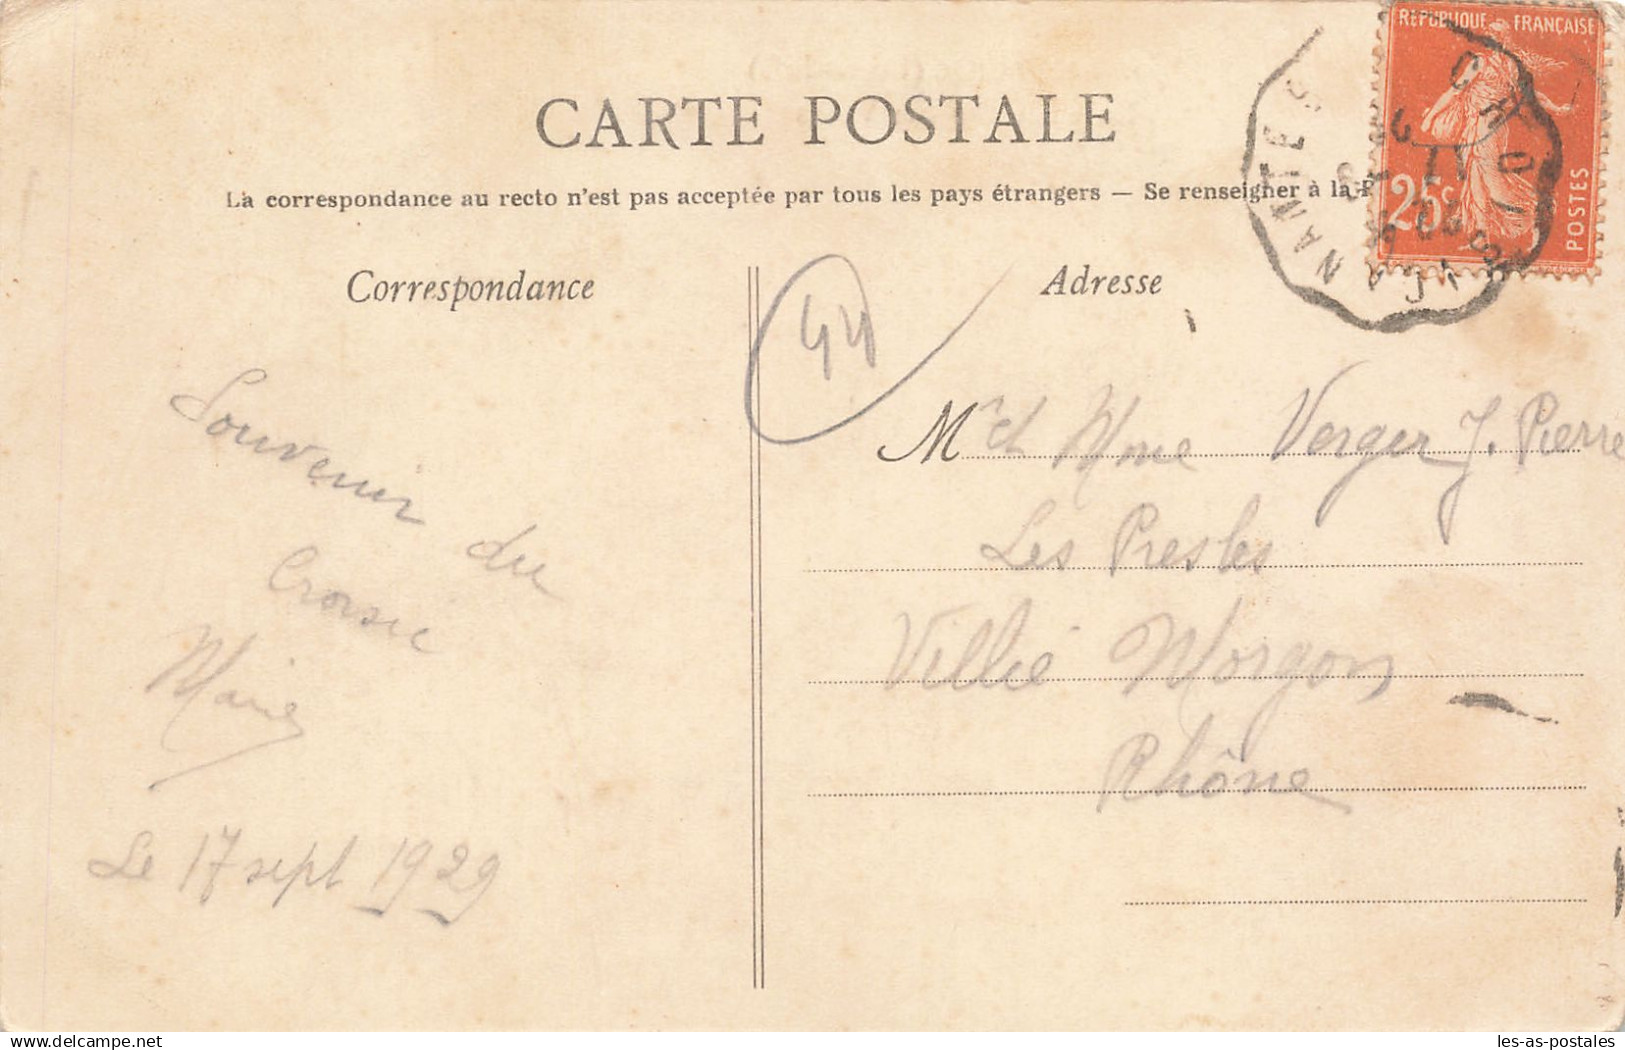 CARTE POSTALE
La correspondance au recto n'est pas acceptée par tous les pays étrangers — Se renseigner à la P
REPUBLIQUE FRANÇAISE
25c
POSTES
NANTES
CROISIC
Correspondance
Adresse
44
Souvenir du
Croisic
Marie
Le 17 sept 1929
Mr et Mme Verger J. Pierre
Les Presles
Villié Morgon
Rhône
les-as-postales